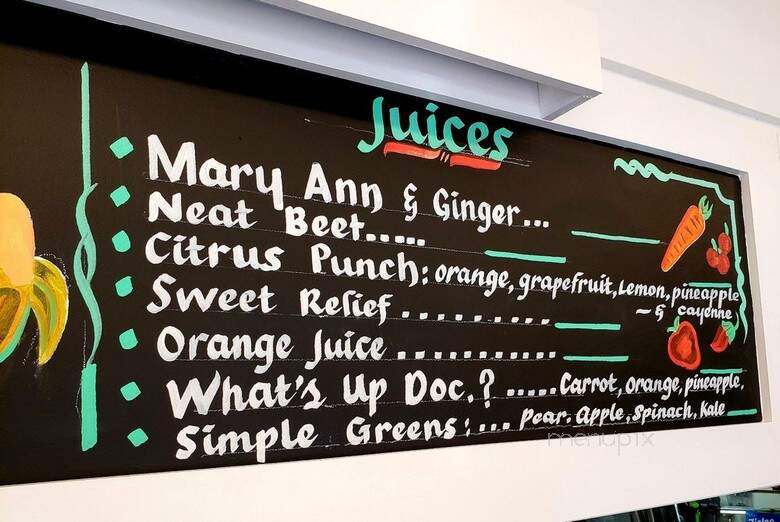 Juices
Mary Ann & Ginger...
Neat Beet.....
Citrus Punch: orange, grapefruit, Lemon, pineapple
- & cayenne
Sweet Relief ..........
Orange Juice ...........
What's Up Doc.? ..... Carrot, orange, pineapple,
Simple Greens: ... Pear. Apple, Spinach, Kale
menupix